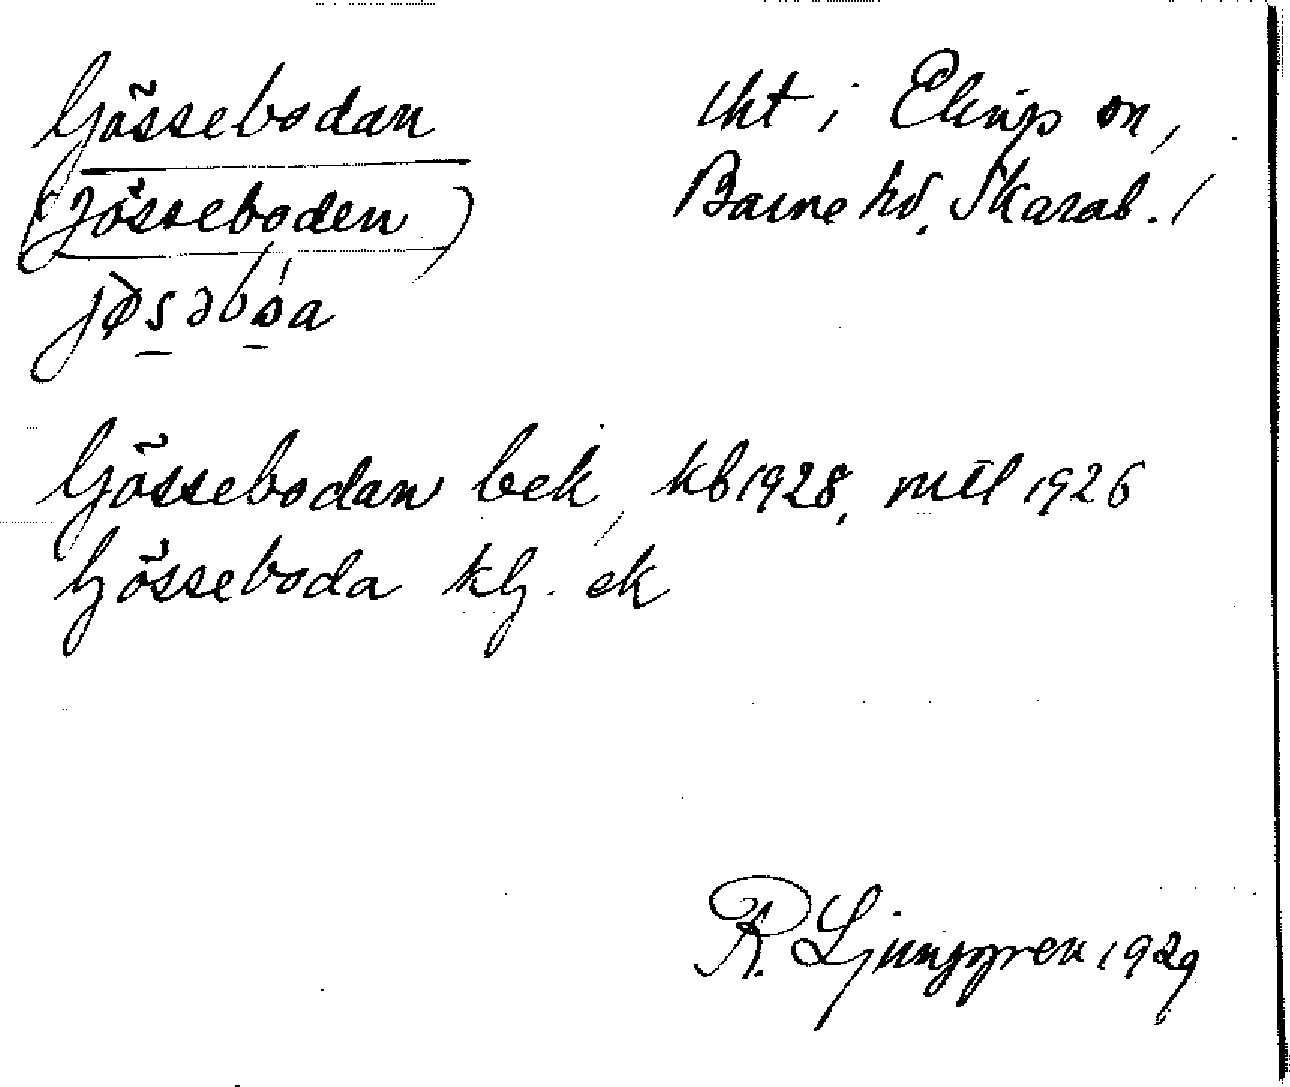 Gösseboda​n
(Jösseboden)
lht i Elings sn,
Barne hd, Skarab. l
Gössebodan bek, kb 1928, mtl 1926
Gösseboda kg. ek
R. Ljunggren 1929